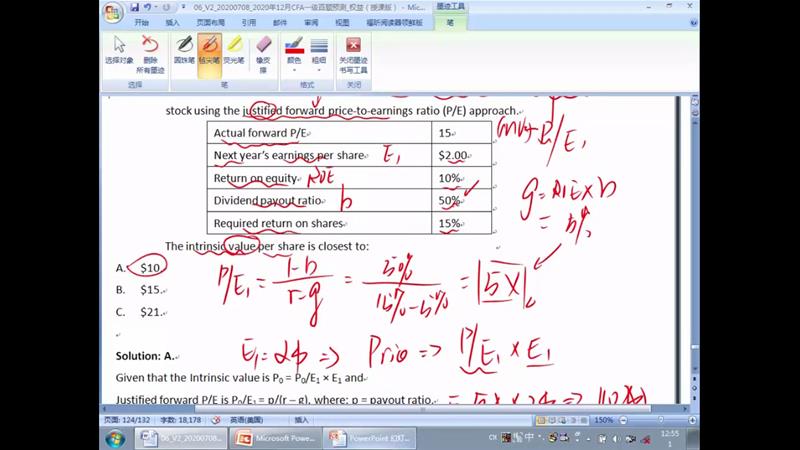 06_V2_20200708_2020年12月CFA一级百题预测_权益（授课版） - Mic...
墨迹工具
文件 开始 插入 页面布局 引用 邮件 审阅 视图 福昕阅读器领鲜版 笔
选择对象 删除所有墨迹 圆珠笔 毡尖笔 荧光笔 橡皮擦 颜色 粗细 关闭墨迹书写工具
选择 书写 格式 关闭
stock using the justified forward price-to-earnings ratio (P/E) approach.
Actual forward P/E 15
P/E₁
Next year's earnings per share E₁ $2.00
Return on equity ROE 10%
g = ROE × b
Dividend payout ratio b 50%
= 5%
Required return on shares 15%
The intrinsic value per share is closest to:
A. $10.
P/E₁ = 1-b / r-g = 50% / 15%-5% = 5X
B. $15.
C. $21.
E₁ = 2$ => Price => P/E₁ × E₁
Solution: A.
Given that the Intrinsic value is P₀ = P₀/E₁ × E₁ and
Justified forward P/E is P₀/E₁ = p/(r − g), where: p = payout ratio.
= 5X × 2$ =>
页面: 124/132 字数: 18,178 英语(美国) 150%
06_V2_20200708... Microsoft Powe... PowerPoint 幻灯...
CH 中 12:55